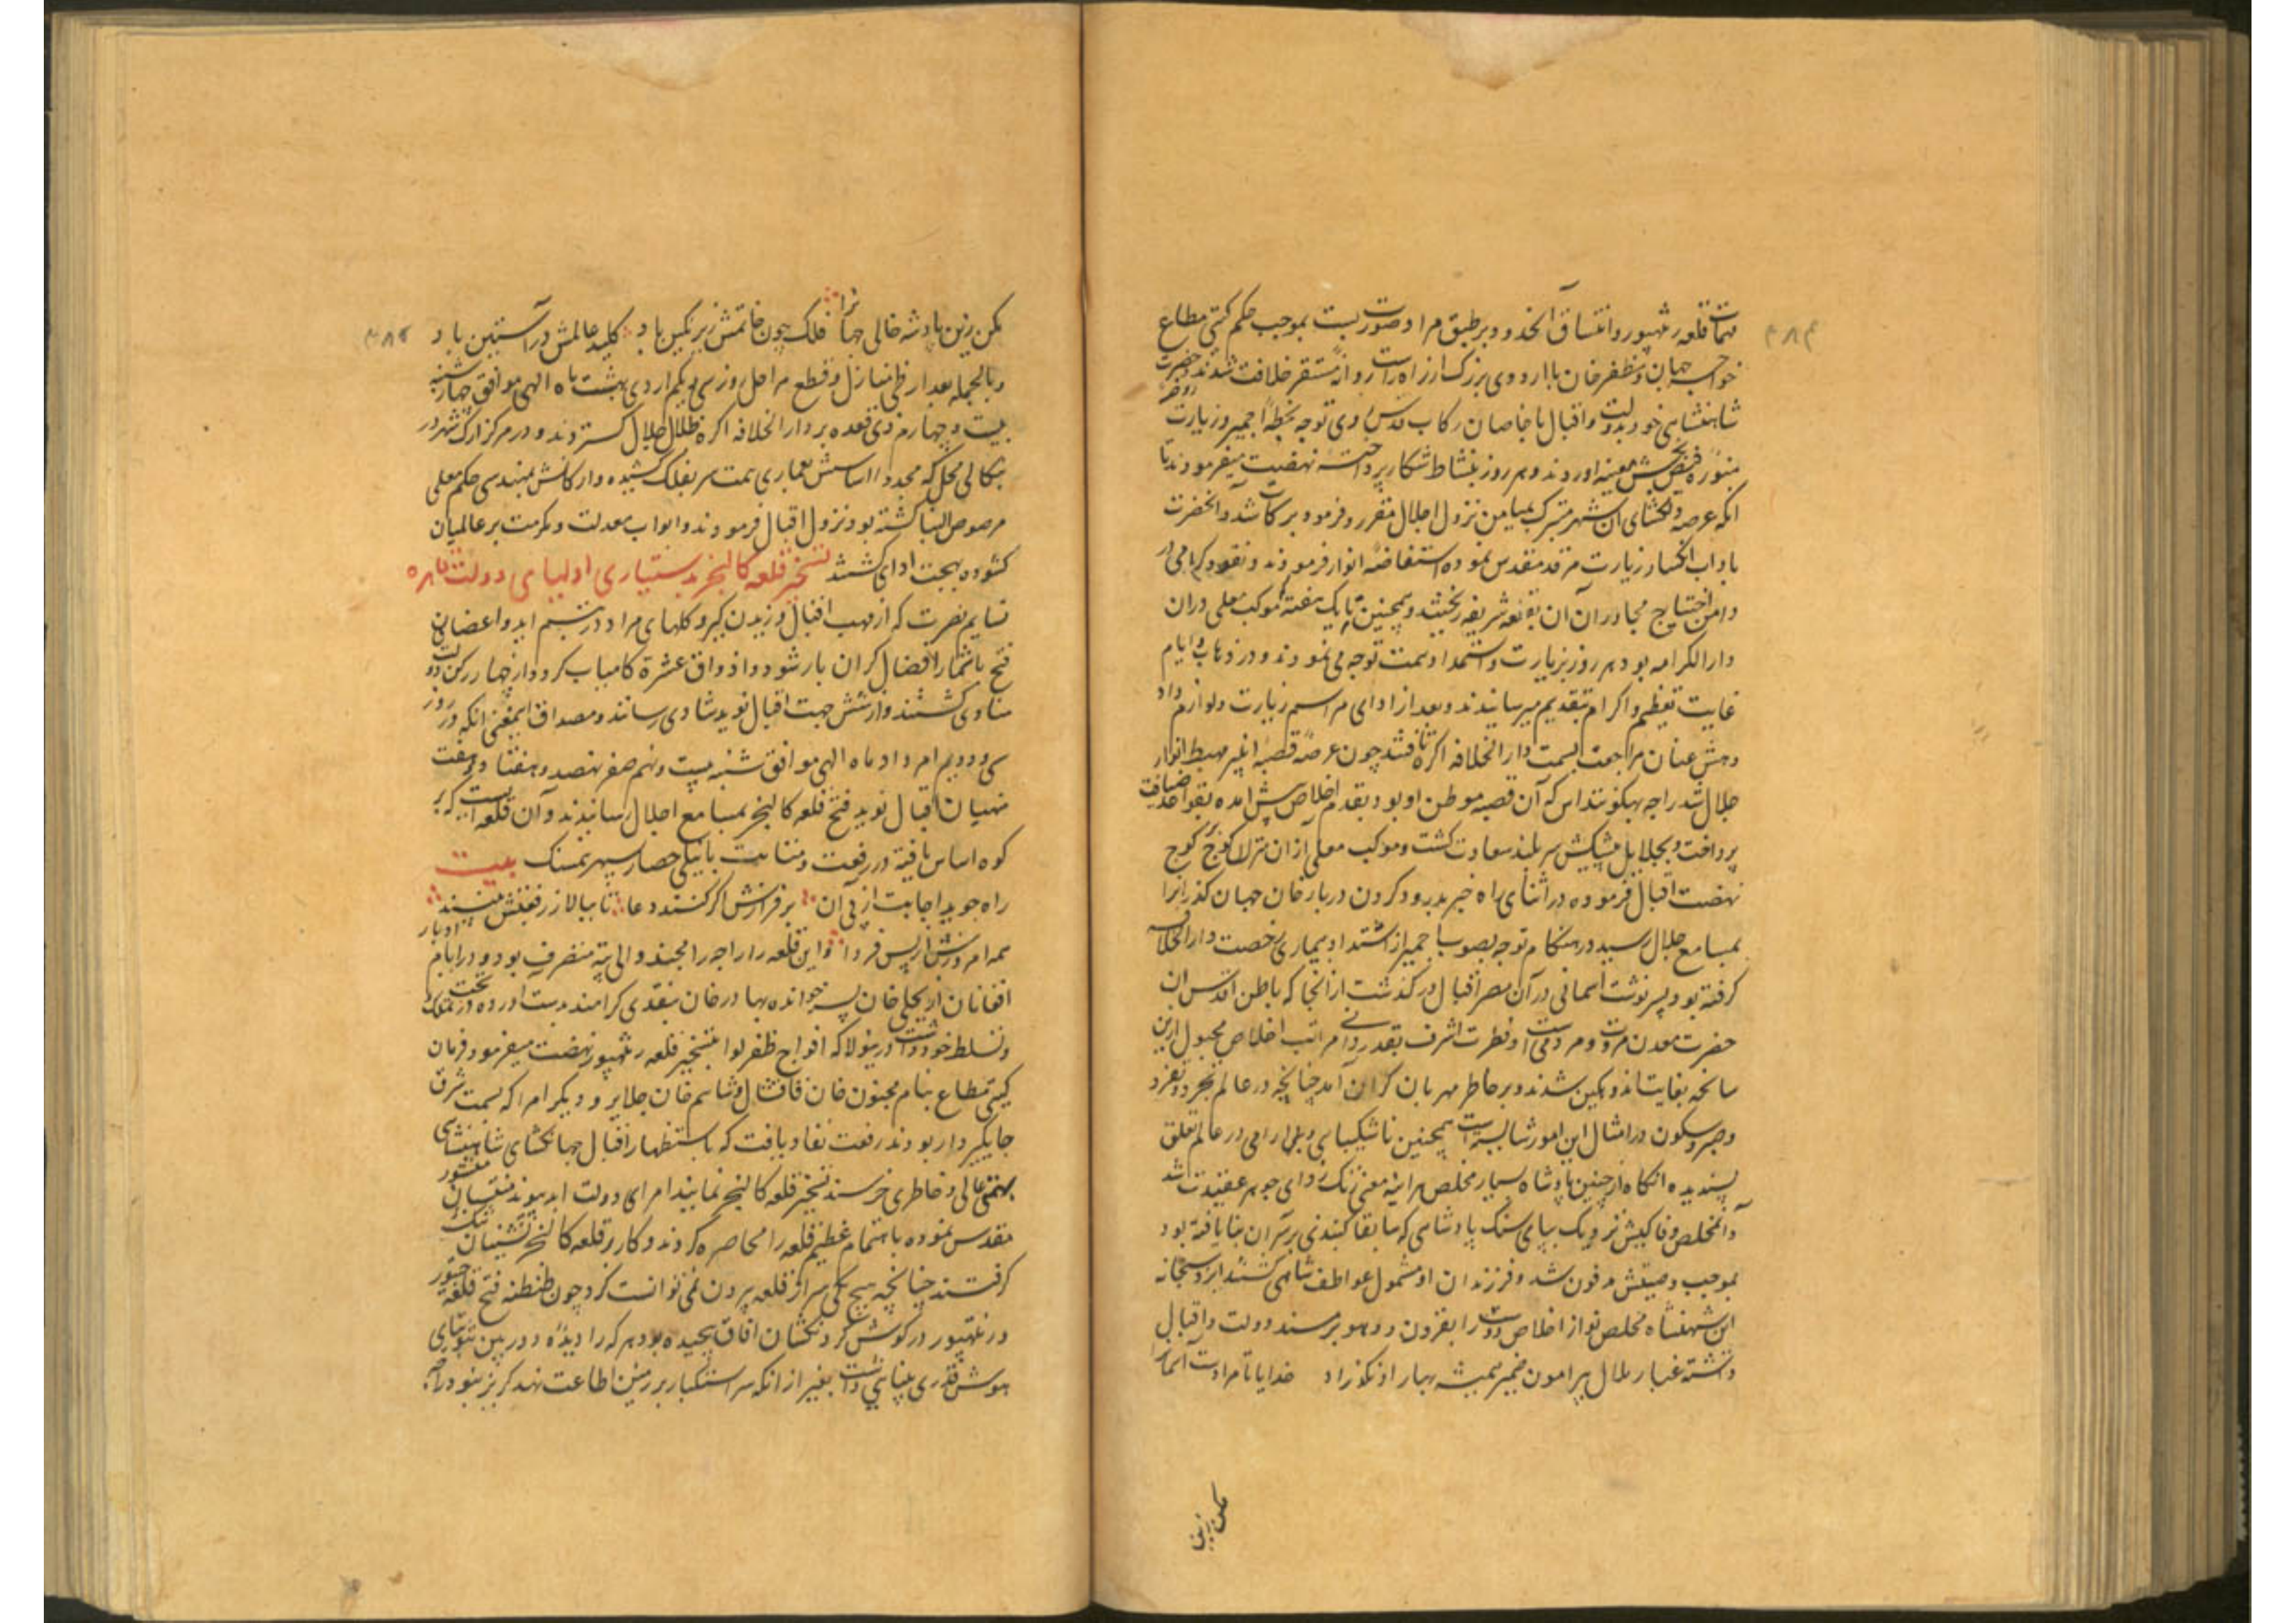 ۴۸۴
مهمات قلعه رنتهپور و انتساق آنحدود بر طبق مراد صورت بست بموجب حکم گیتی مطاع
خواجه جهان و مظفر خان با اردوی بزرک از راه راست روانهٔ مستقر خلافت شدند و حضرت
شاهنشاهی خود بدولت و اقبال با خاصان رکاب قدس روی توجه بخطهٔ اجمیر و زیارت روضهٔ
منوره فیض بخش معینیه آوردند و هر روز بنشاط شکار پرداخته نهضت میفرمودند تا
انکه عرصه دلکشای آن شهر متبرک بمیامن نزول اجلال مقرر و فرموده برکات شد و آنحضرت
باداب انکسار زیارت مرقد مقدس نموده استفاضهٔ انوار فرمودند و نقود گرامی در
دامن احتیاج مجاوران آن بقعه شریفه ریختند و همچنین تا یک هفته موکب معلی دران
دارالکرامه بود هر روز بزیارت و استمداد همت توجه می نمودند و در ذهاب و ایاب
غایت تعظیم و اکرام بتقدیم میرسانیدند و بعد از ادای مراسم زیارت و لوازم داد
دهش عنان مراجعت بسمت دارالخلافه اگره تافتند چون عرصهٔ قصبهٔ انبیر مهبط انوار
جلال شد راجه بهکونتداس که آن قصبه موطن او بود بقدم اخلاص پیش امده بقواعد ضیافت
پرداخت و بجلایل پیشکش سربلند سعادت کشت و موکب معلی از ان منزل کوچ کوچ
نهضت اقبال فرموده در اثنای راه خبر بدرود کردن دربار خان جهان گذرانرا
بمسامع جلال رسید در هنکام توجه بصوب اجمیر از اشتداد بیماری رخصت دارالخلافه
گرفته بود بسرنوشت اسمانی در آن مصر اقبال درگذشت از انجا که باطن اقدس ان
حضرت معدن مروت و مردمی است و فطرت اشرف بقدردانی مراتب اخلاص مجبول ازین
سانحه بغایت اندوهگین شدند و بر خاطر مهربان گران آمد چنانچه در عالم تجرد و تفرد
و صبر و سکون در امثال این امور شایسته است همچنین ناشکیبایی و بی ارامی در عالم تعلق
پسندیده انکاه از چنین پادشاه بسیار مخلص هر اینه معنی زنک زدای جوهر عقیدت باشد
و آنمخلص وفاکیش نزدیک بپای سنک پادشاهی که سابقا گنبدی بر سر ان بنا یافته بود
بموجب وصیتش مدفون شد و فرزندان او مشمول عواطف شاهی کشتند ایزد سبحانه
این شهنشاه مخلص نواز اخلاص دوست را بقرون و دهور بر مسند دولت و اقبال
داشته غبار ملال پیرامون ضمیر همیشه بهار او نگذراد خدایا تا مراد است آسمانرا
مکن زین
۴۸۵
مکن زین پادشه خالی جهانرا فلک چون خاتمش زیر نگین باد کلید عالمش در آستین باد
و بالجمله بعد از طی منازل و قطع مراحل روز سی و یکم اردی بهشت ماه الهی موافق چهارشنبه
بیست و چهارم ذی قعده بر دارالخلافه اگره ظلال جلال گستردند و در مرکز ارک شهر در
بنگالی محل که مجددا اساسش بمعماری همت سر بفلک کشیده و ارکانش بمهندسی حکم معلی
مرصوص البنا گشته بود نزول اقبال فرمودند و ابواب معدلت و مکرمت بر عالمیان
کشوده بهجت ادای گشتند تسخیر قلعه کالنجر بدستیاری اولیای دولت قاهره
نسایم نصرت که از مهب اقبال وزیدن گیرد گلهای مراد در تبسم اید و اغصان
فتح باثمار افضال گران بار شود و اذواق عشرة کامیاب گردد از چهار رکن دولت
منادی گشتند و از شش جهت اقبال نوید شادی رسانند و مصداق اینمعنی انکه در روز
سی و دویم امرداد ماه الهی موافق شنبه بیست و نهم صفر نهصد و هفتاد و هفت
منهیان اقبال نوید فتح قلعه کالنجر بمسامع اجلال رسانیدند و آن قلعه ایست که بر
کوه اساس یافته در رفعت و متانت بانیلی حصار سپهر همسنک بیت
راه جوید اجابت از پی آن بر فرازش اگر کنند دعا تا ببالا ز رفعتش بینند
همه امروزش از پس فردا و این قلعه را راجه رامچند والی پته متصرف بود و در ایام ادبار
افغانان از بجلی خان پسر خوانده بهار خان بنقدی گرامند بدست اورده در تحت تملک
و تسلط خود داشت درینولا که افواج ظفر لوا بتسخیر قلعه رنتهپور نهضت میفرمود فرمان
گیتی مطاع بنام مجنون خان قاقشال و شاهم خان جلایر و دیگر امرا که بسمت شرق
جایگیر دار بودند رفعت نفاذ یافت که باستظهار اقبال جهانگشای شاهنشاهی
بهمتی عالی و خاطری خرسند تسخیر قلعه کالنجر نمایند امرای دولت ابدپیوند منشور
مقدس نموده باهتمام عظیم قلعه را محاصره گردند و کار بر قلعه کالنجر نشینان تنک
گرفتند چنانچه هیچ کس سر از قلعه بیرون نمی توانست کرد چون طنطنه فتح قلعه چیتور
و رنتهپور در گوش گردنکشان افاق پیچیده بود هر که را دیده دوربین بتوتیای
هوش قدری بینایی داشت بغیر از انکه سر استکبار بر زمین اطاعت نهد گریز نبود راجه